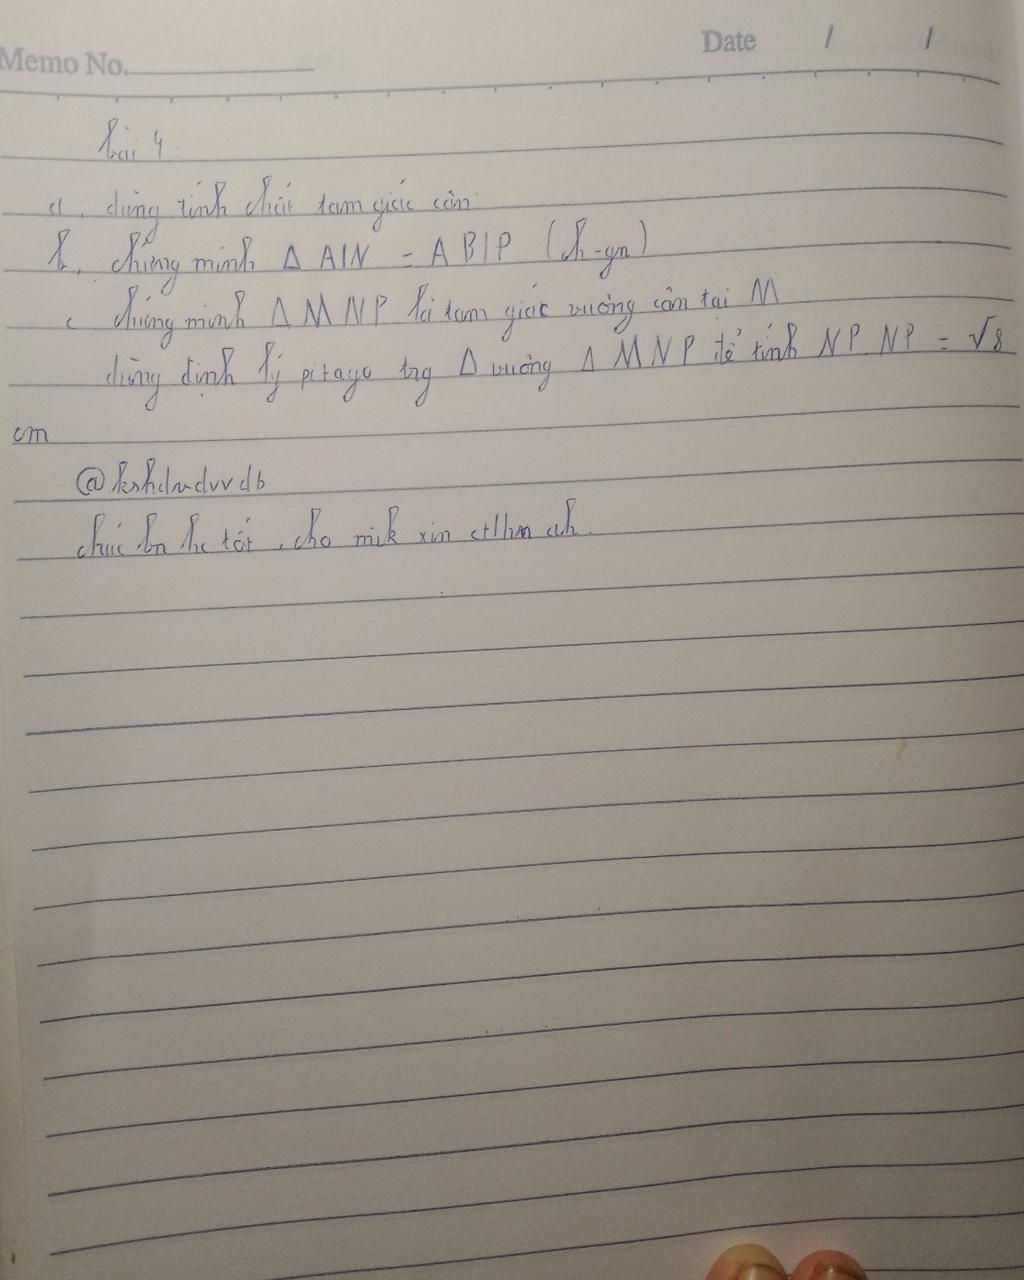 Memo No.
Date / /
bài 4:
a, dùng tính chất tam giác cân
b, chứng minh Δ AIN = Δ BIP (ch-gn)
c chứng minh Δ MNP là tam giác vuông cân tại M
dùng định lý pitago trg Δ vuông Δ MNP để tính NP NP = √8
cm
@kshdvdvvdb
chúc bn hc tốt, cho mik xin ctlhn ah.